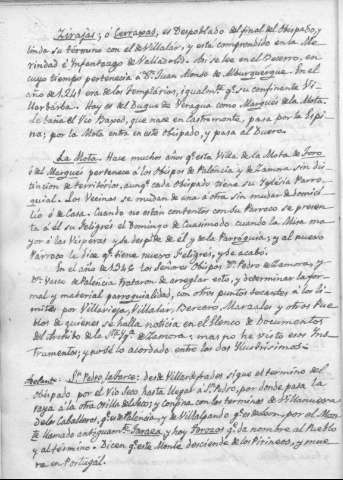 Zirajas; ó Cerraxas, es Despoblado del final del Obispado, y
linda su término con el de Villalar, y está comprendido en la Me-
rindad é Infantazgo de Valladolid. Asi se lee en el Becerro, en
cuyo tiempo pertenecia á Dn. Juan Alonso de Alburquerque. En el
año de 1241 era de los Templarios, igualmte. qe. su confinante Vi-
llarbarba. Hoy es del Duque de Veragua como Marqués de la Mota.
le baña el Rio Bajoz, que nace en Castromonte, pasa por la Espi-
na, por la Mota entra en este obispado, y pasa al Duero.
La Mota. Hace muchos años qe. esta Villa de la Mota de Toro
ó del Marqués pertenece á los Obispos de Palencia y de Zamora sin dis-
tincion de territorios, aunqe. cada Obispado tiene su Yglesia Parro-
quial. Los Vecinos se mudan de una á otra sin mudar de domici-
lio ó de Casa. Cuando no están contentos con su Parroco se presen-
ta á el su Feligres el Domingo de Cuasimodo cuando la Misa ma-
yor ó las Visperas y se despide de él y de la Parroquia; y al nuevo
Parroco le dice qe. tiene nuevo Feligres, y se acabó.
En el año de 1346 los Señores Obispos Dn. Pedro de Zamora, y
Dn. Vasco de Palencia trataron de arreglar esto, y determinar la for-
mal y material parroquialidad, con otros puntos decantes á los li-
mites por Villavieja, Villalar, Bercero, Marzales y otros Pue-
blos de quienes se halla noticia en el Elenco de Documentos
del Archibo de la Sta. Yga. de Zamora; mas no he visto esos Ins-
trumentos; y no sé lo acordado entre los dos Ilustrisimos.
Adelant. Sn. Pedro la Tarce: desde Villardefrades sigue el termino del
Obispado por el Rio Seco hasta llegar á Sn. Pedro, por donde pasa la
raya á la otra orilla del Seco, y confina con los terminos de Villanueva
de los Caballeros, qe. es de Palencia, y de Villalpando qe. es de Leon, por el Mon-
te llamado antiguamte. y hoy Torozos qe. da nombre al Pueblo
y al término. Dicen qe. este Monte desciende de los Pirineos, y mue-
re en Portugal.